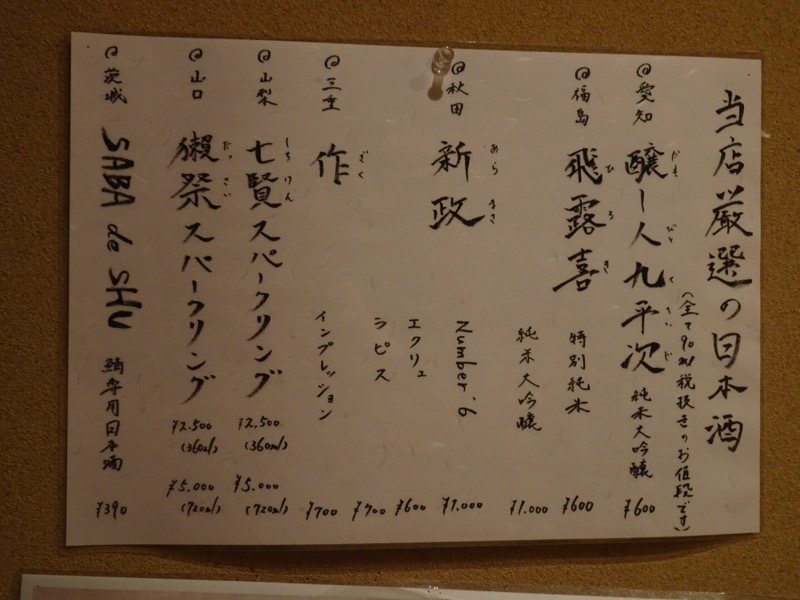 当店厳選の日本酒
(全て90ml税抜きのお値段です)
愛知 醸し人九平次 純米大吟醸 ¥600
かも びと く へい じ
福島 飛露喜 特別純米 ¥600
ひ ろ き
純米大吟醸 ¥1.000
秋田 新政 Number.6 ¥1.000
あら まさ
エクリュ ¥600
ラピス ¥700
三重 作 インプレッション ¥700
ざく
山梨 七賢スパークリング ¥2,500 (360ml) ¥5.000 (720ml)
しち けん
山口 獺祭スパークリング ¥2.500 (360ml) ¥5.000 (720ml)
だっ さい
茨城 SABA de SHU 鯖専用日本酒 ¥390